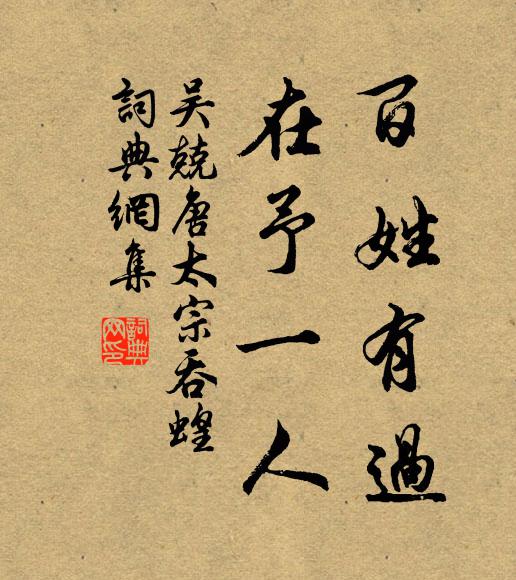 百姓有過
在予一人
吴兢唐太宗吞蝗
詞典網集
詞典
网印